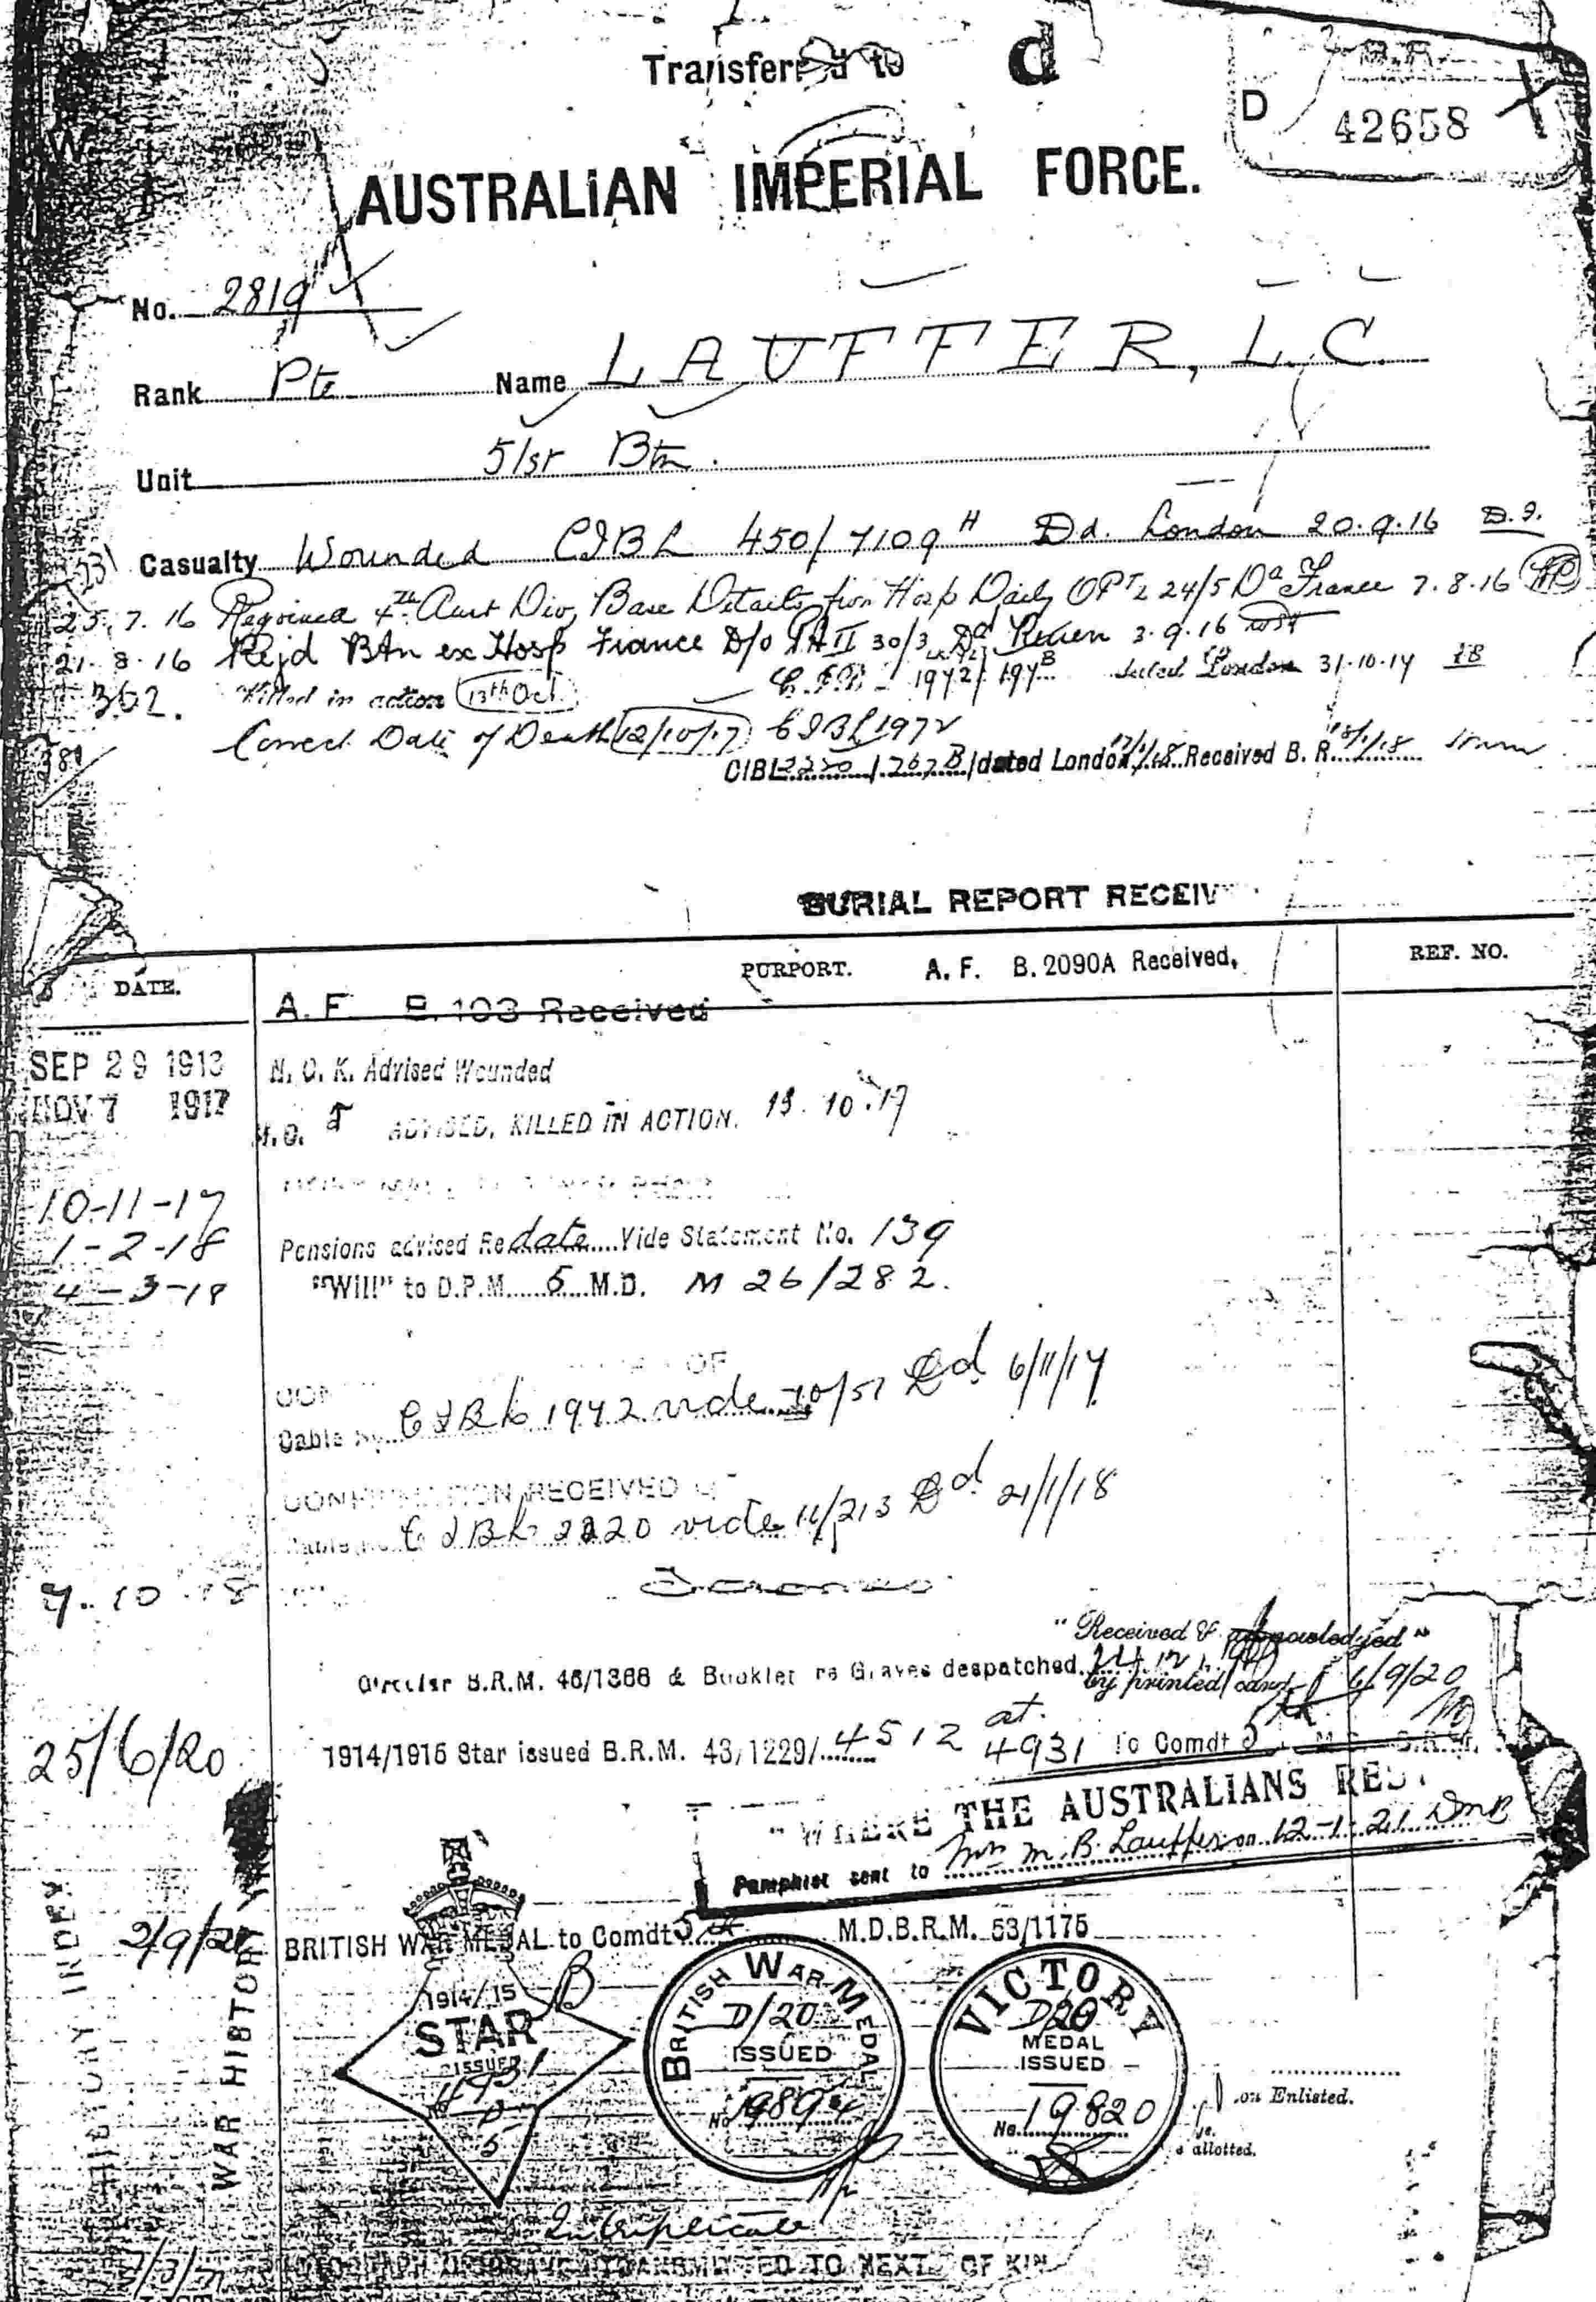 Transferred to d
B.R.
D 42658
AUSTRALIAN IMPERIAL FORCE.
No. 2819
Rank Pte Name LAUFFER, L.C.
Unit 51st Btn.
Casualty Wounded CIBL 450/7109 H Dd. London 20.9.16 D.I.
25.7.16 Rejoined 4th Aust Div Base Details from Hosp Daily 24/5 Dd France 7.8.16
21.8.16 Rejd Btn ex Hosp France D/o PA II 30/3 Dd Rouen 3.9.16
362. Killed in action 13th Oct. 1972/194B dated London 31.10.17
Correct Date of Death 12/10/17 CIBL 1972
CIBL 2220/267B dated London Received B.R.
BURIAL REPORT RECEIV
DATE. PURPORT. A.F. B.2090A Received, REF. NO.
A.F. B.103 Received
SEP 29 1916 N.O.K. Advised Wounded
NOV 7 1917 ADVISED, KILLED IN ACTION. 13.10.17
10-11-17
1-2-18 Pensions advised Re date Vide Statement No. 139
4-3-18 "Will" to D.P.M. 5 M.D. M 26/282.
OF
Cable No. 1972 vide 70/51 Dd 6/11/17
CONFIRMATION RECEIVED
Cable No. 2220 vide 11/213 Dd 21/1/18
7.10.18
"Received & acknowledged"
by printed card 6/9/20
Circular B.R.M. 46/1366 & Booklet re Graves despatched.
25/6/20 1914/1915 Star issued B.R.M. 43/1229/ 4512 at 4931 To Comdt 5
"WHERE THE AUSTRALIANS REST
Pamphlet sent to Mrs M.B. Lauffer on 12-1-21 DMB
2/9/20 BRITISH WAR MEDAL to Comdt 5th M.D.B.R.M. 53/1175
HISTORY INDEX
WAR HISTORY
1914/15 STAR ISSUED 4931 D 5
B
BRITISH WAR MEDAL D/20 ISSUED No
VICTORY D20 MEDAL ISSUED No. 19820
on Enlisted.
allotted.
In triplicate
TRANSMITTED TO NEXT OF KIN